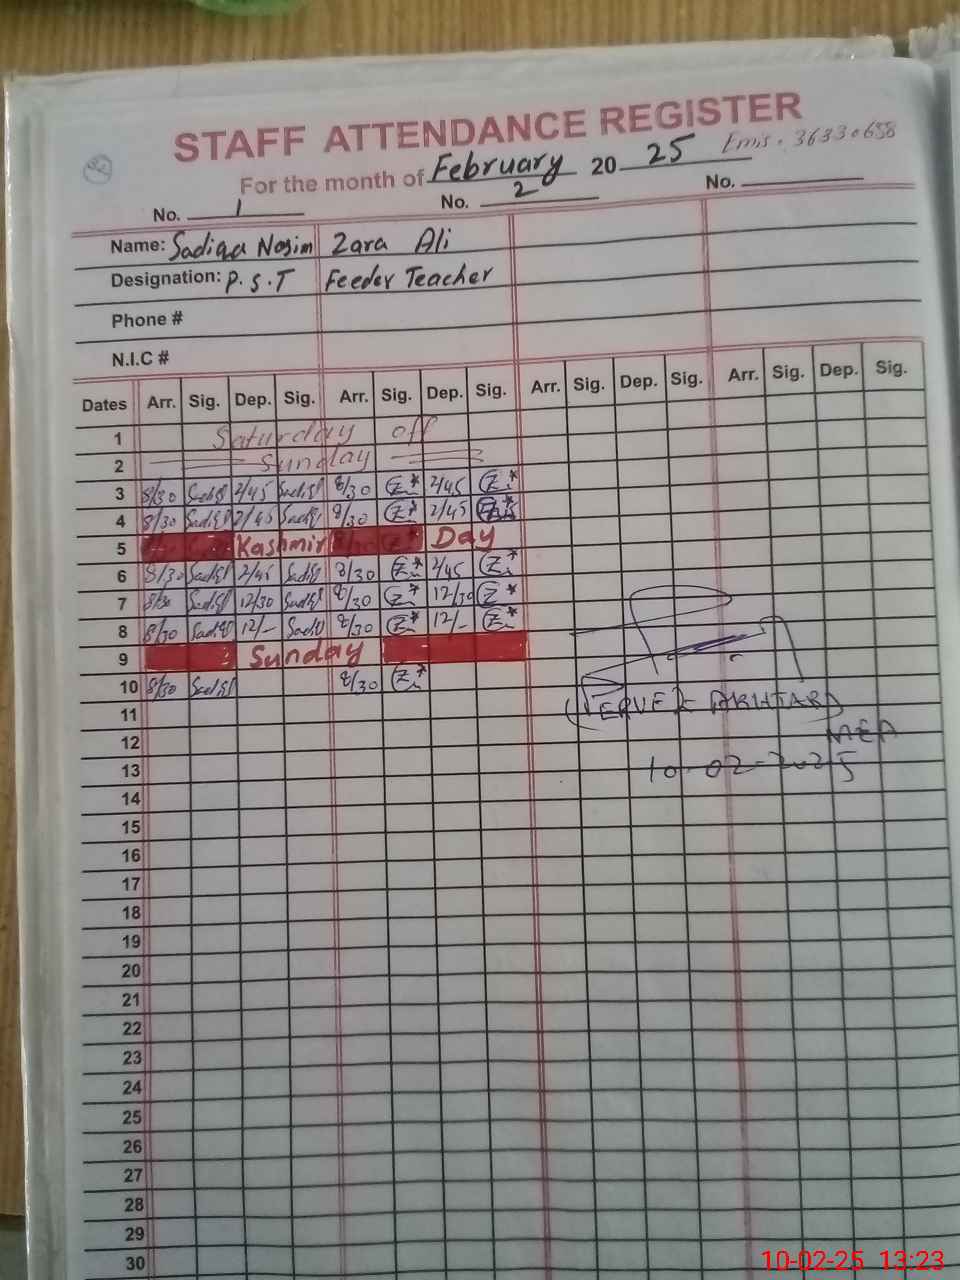 STAFF ATTENDANCE REGISTER
Emis. 36330658
For the month of February 2025
No. 1 No. 2 No.
Name: Sadiqa Nasim Zara Ali
Designation: P.S.T Feeder Teacher
Phone #
N.I.C #
Dates Arr. Sig. Dep. Sig. Arr. Sig. Dep. Sig. Arr. Sig. Dep. Sig. Arr. Sig. Dep. Sig.
1 Saturday off
2 Sunday
3 8/30 2/45 8/30 2/45
4 8/30 2/45 8/30 2/45
5 Kashmir Day
6 8/30 2/45 8/30 2/45
7 8/30 12/30 8/30 12/30
8 8/30 12/- 8/30 12/-
9 Sunday
10 8/30 8/30
11
(PERVEZ AKHTAR)
12
MEA
13
10-02-2025
14
15
16
17
18
19
20
21
22
23
24
25
26
27
28
29
30
10-02-25 13:23